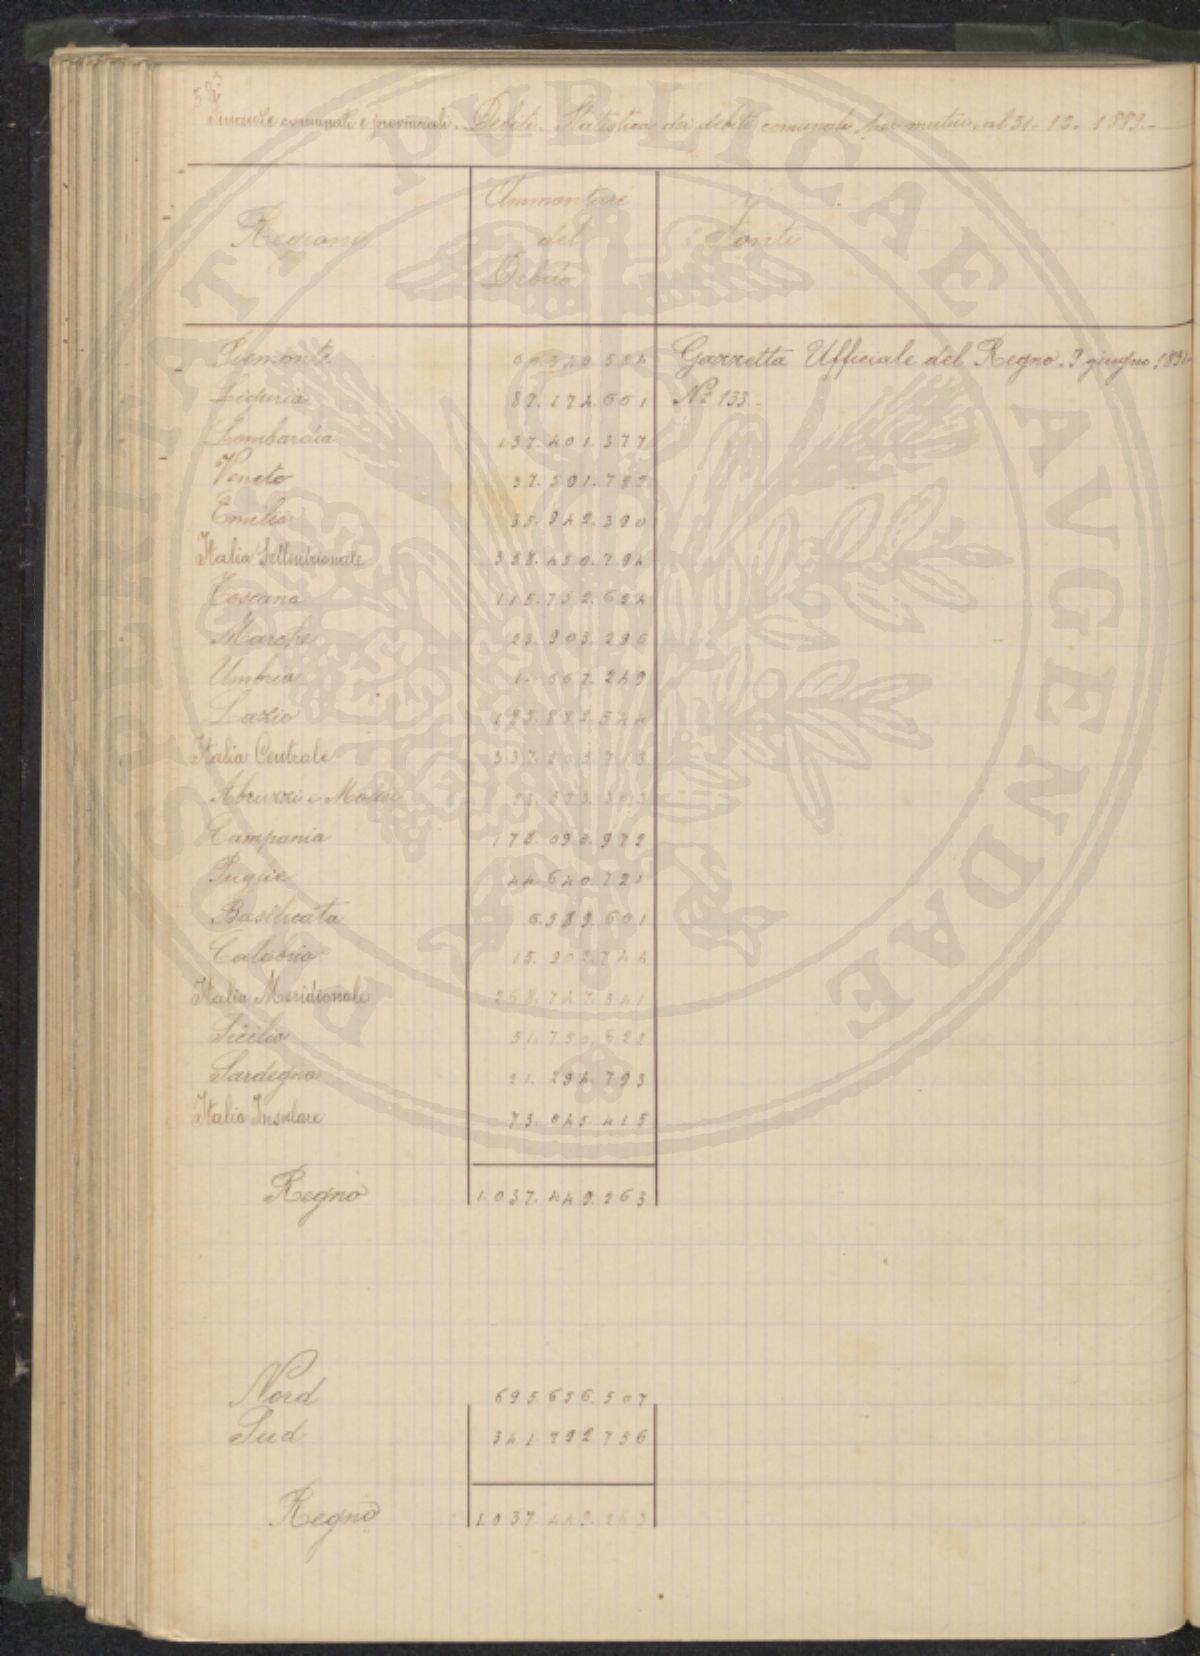 Finanze comunali e provinciali. Debiti. Statistica dei debiti comunali per mutui, al 31-12-1889.-
Regioni Ammontare del Debito Fonti
Piemonte Gazzetta Ufficiale del Regno. 9 giugno
Liguria 87.174.661 No 133.
Lombardia 137.401.377
Veneto 37.591.782
Emilia 35.942.390
Italia Settentrionale 358.450.794
Toscana 115.752.624
Marche 23.903.296
Umbria
Lazio
Italia Centrale 337.205.713
Abruzzi e Molise
Campania 178.090.972
Puglie 44.640.721
Basilicata 6.589.601
Calabria 15.902.744
Italia Meridionale 268.747.341
Sicilia 51.750.622
Sardegna 21.294.793
Italia Insulare 73.045.415
Regno 1.037.449.263
Nord 695.656.507
Sud 341.792.756
Regno 1.037.449.263
PVBLICAE AVGENDAE